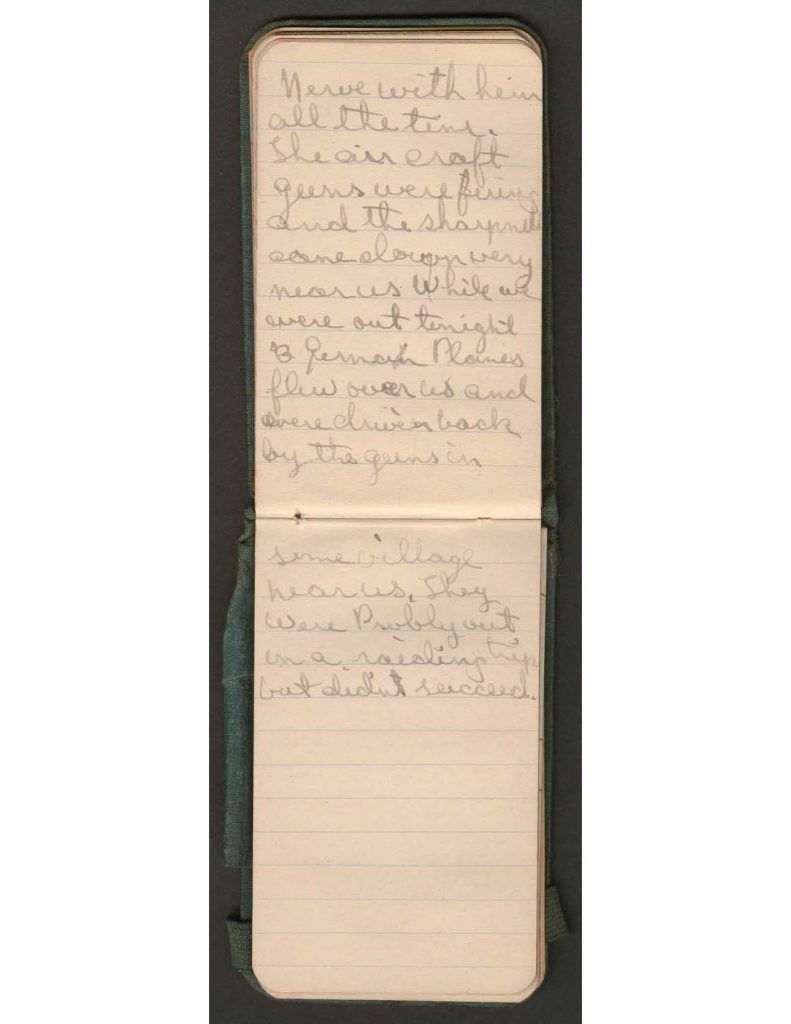 Nerve with him
all the time.
The air craft
guns were firing
and the sharpnel
came down very
near us While we
were out tonight
3 German Planes
flew over us and
were driven back
by the guns in
some village
near us. They
were Probly out
on a raiding trip
but didn't succeed.